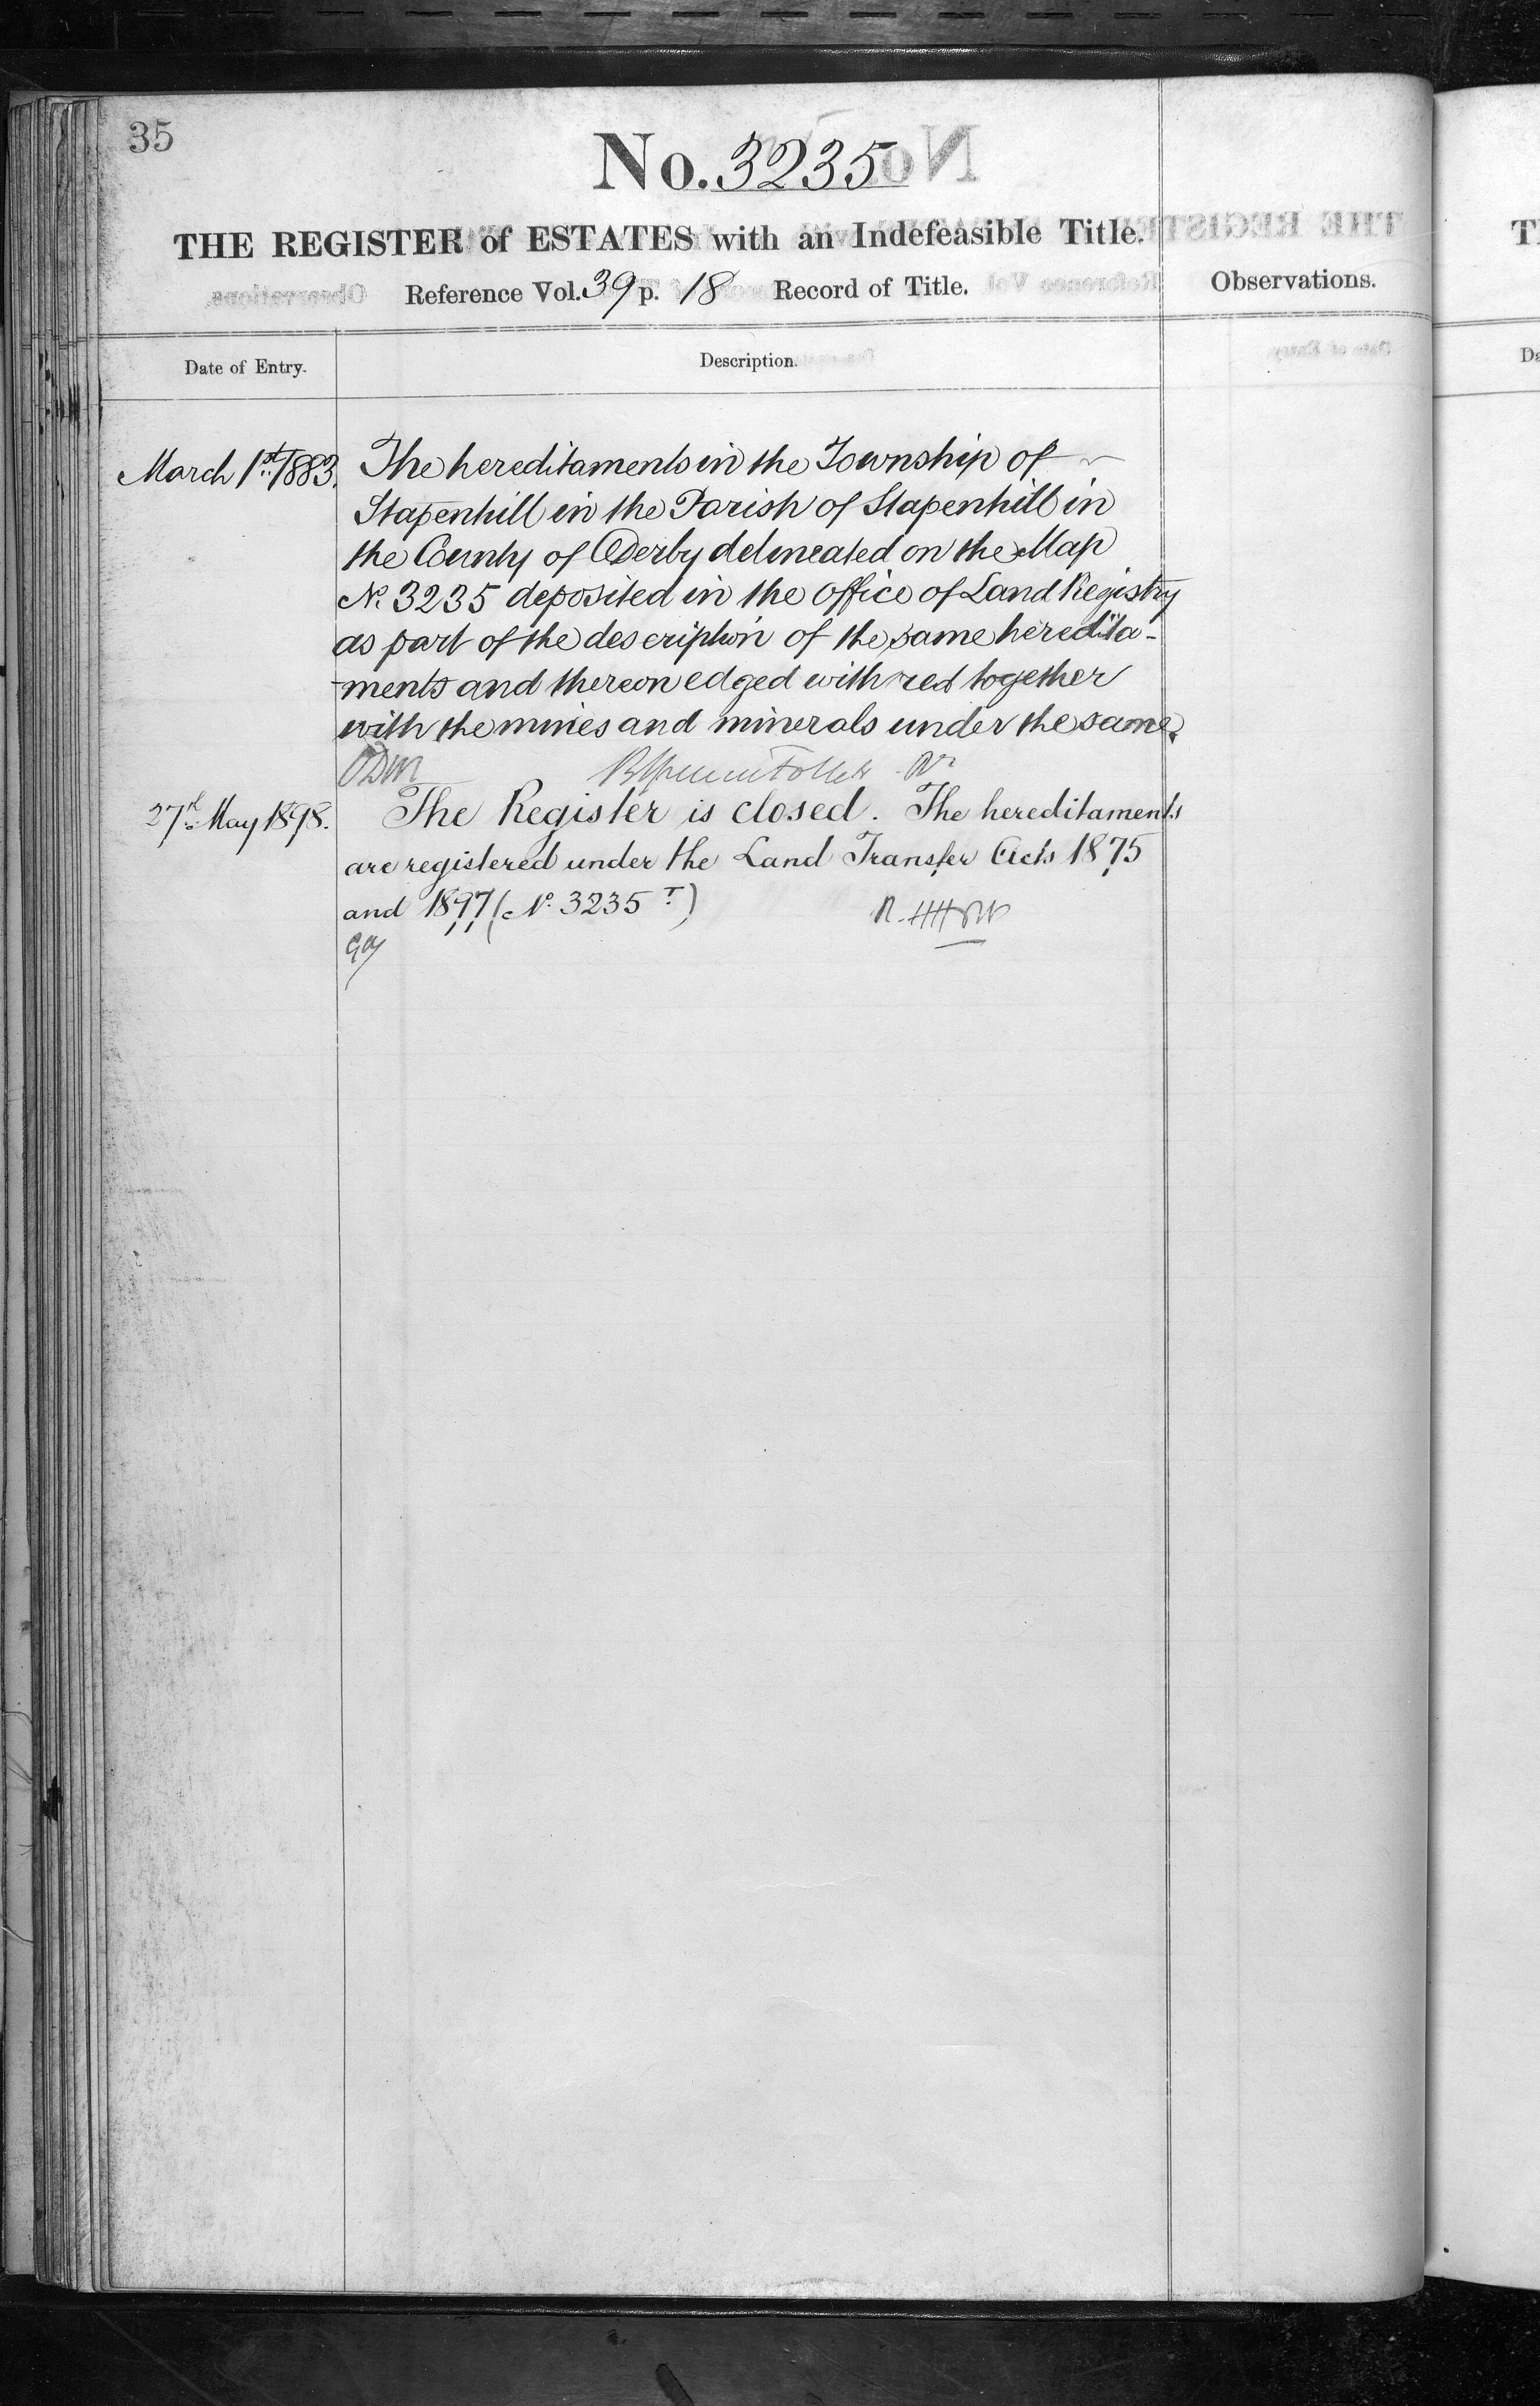 35
No. 3235
THE REGISTER of ESTATES with an Indefeasible Title.
Reference Vol. 39 p. 18 Record of Title.
Observations.
Date of Entry.
Description.
March 1st 1883. The hereditaments in the Township of
Stapenhill in the Parish of Stapenhill in
the County of Derby delineated on the Map
No. 3235 deposited in the office of Land Registry
as part of the description of the same heredita-
ments and thereon edged with red together
with the mines and minerals under the same.
27th May 1898. The Register is closed. The hereditaments
are registered under the Land Transfer Acts 1875
and 1897 (No. 3235 T)